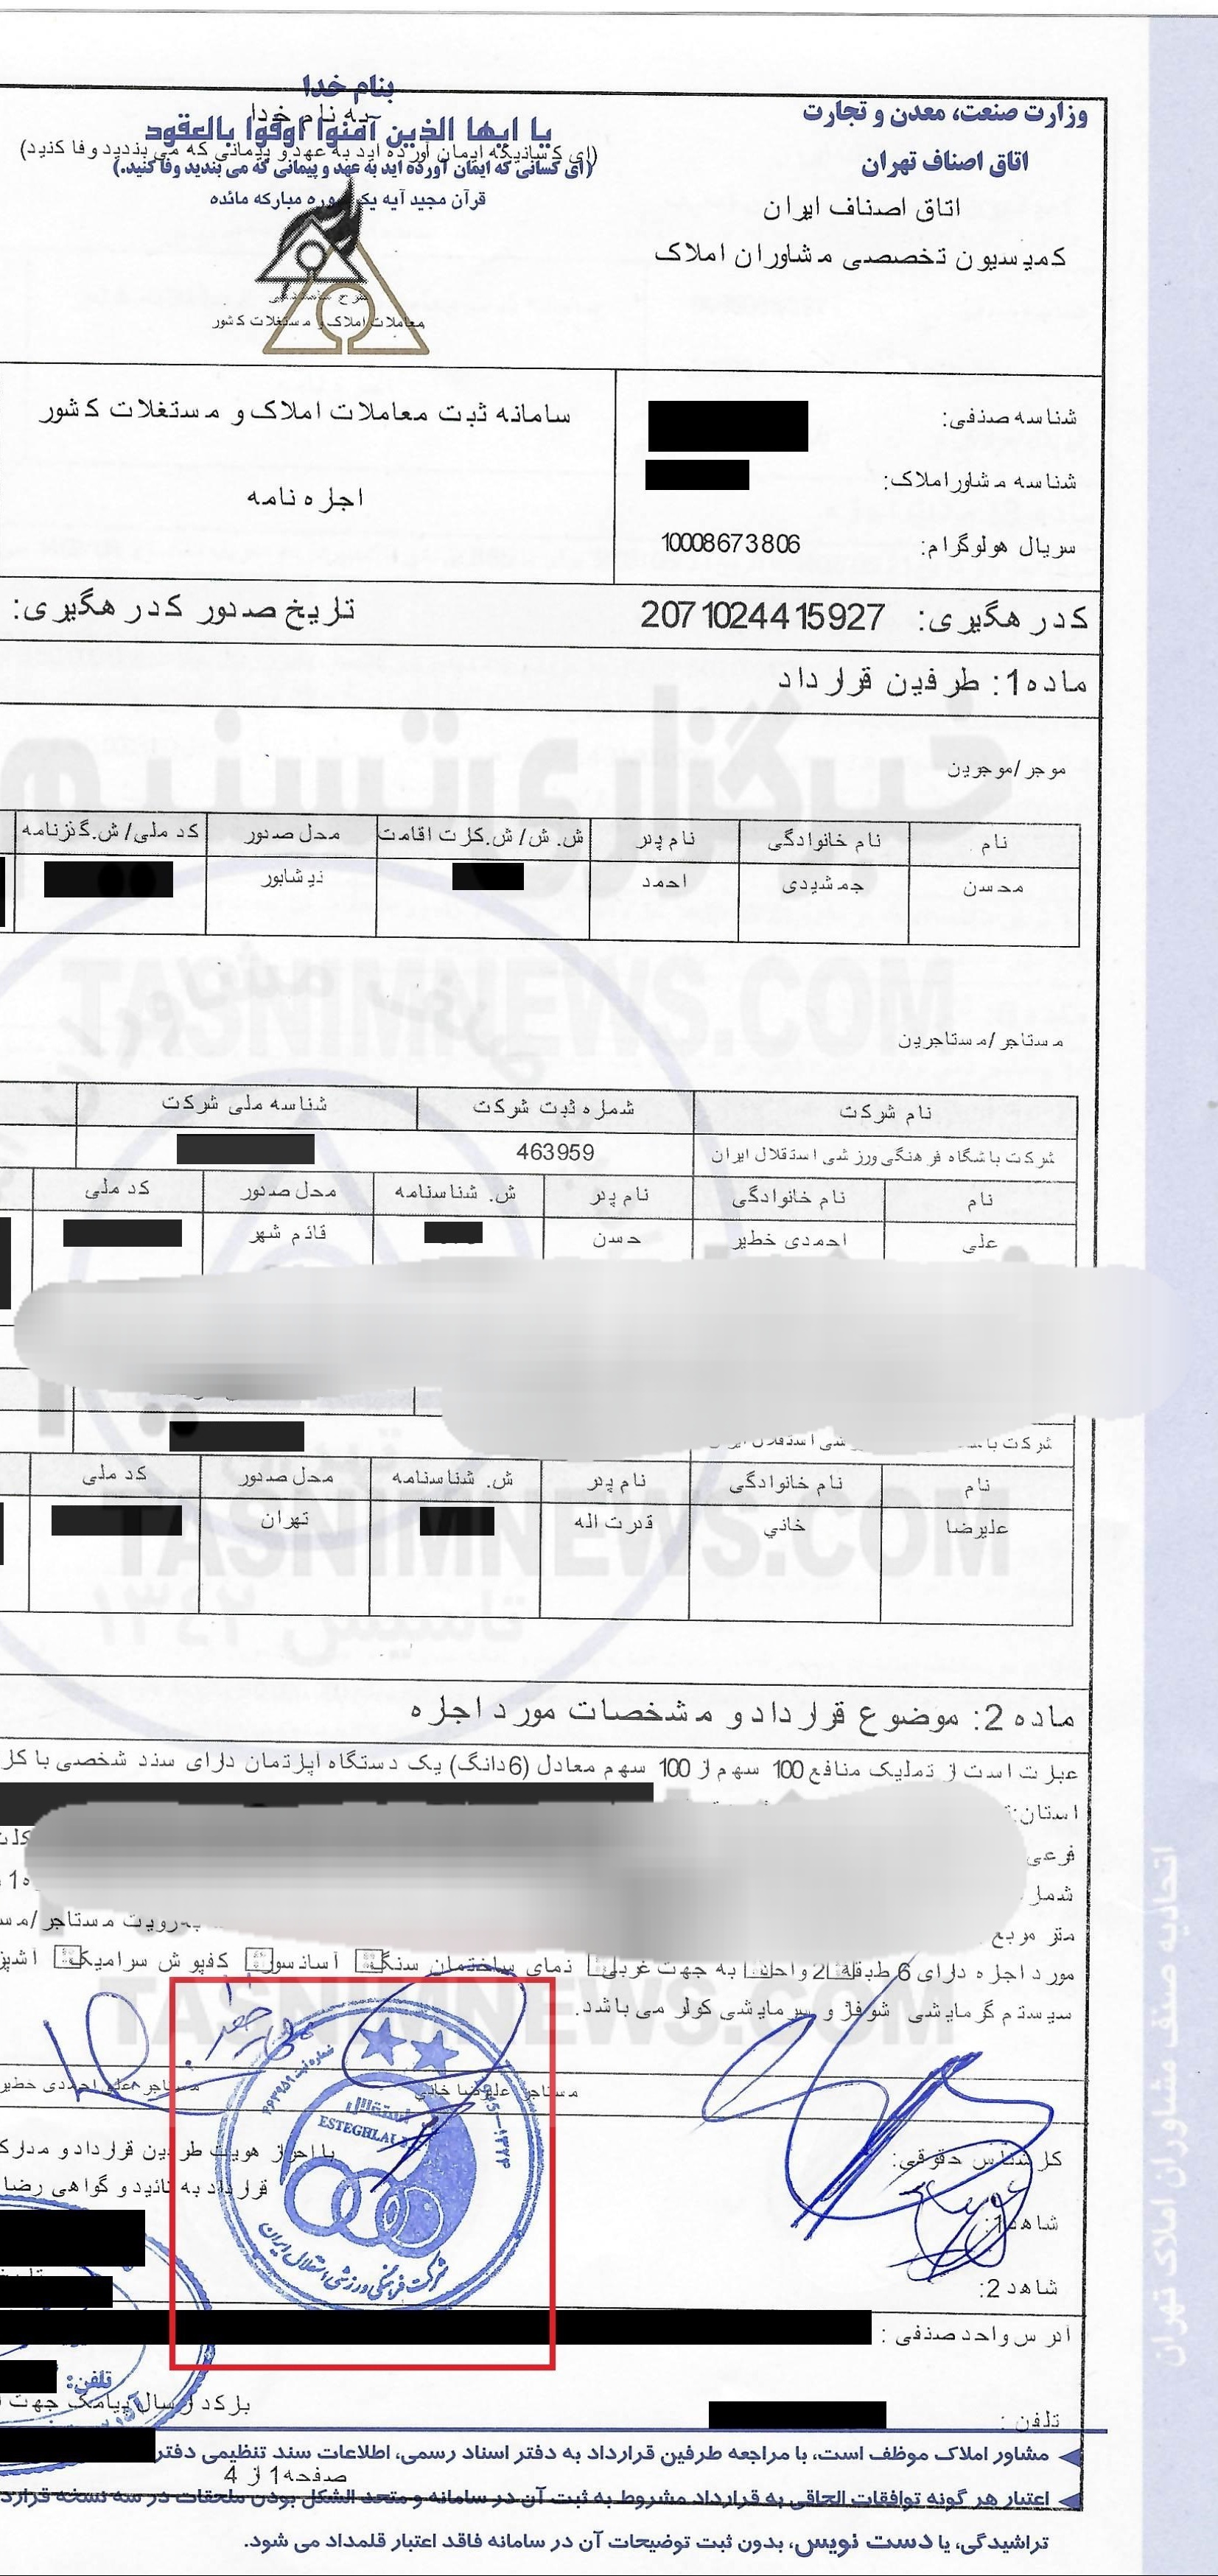 بنام خدا
به نام خدا
یا ایها الذین آمنوا اوفوا بالعقود
(ای کسانیکه ایمان آورده اید به عهد و پیمانی که می بندید وفا کنید)
(ای کسانی که ایمان آورده اید به عهد و پیمانی که می بندید وفا کنید.)
قرآن مجید آیه یک سوره مبارکه مائده
وزارت صنعت، معدن و تجارت
اتاق اصناف تهران
اتاق اصناف ایران
کمیسیون تخصصی مشاوران املاک
معاملات املاک و مستغلات کشور
شناسه صنفی:
شناسه مشاور املاک:
سریال هولوگرام: 10008673806
سامانه ثبت معاملات املاک و مستغلات کشور
اجاره نامه
کد رهگیری: 2071024415927 تاریخ صدور کد رهگیری:
ماده 1: طرفین قرارداد
خبرگزاری تسنیم
موجر/موجرین
نام نام خانوادگی نام پدر ش. ش/ ش.کارت اقامت محل صدور کد ملی/ ش.گذرنامه
محسن جمشیدی احمد نیشابور
TASNIMNEWS.COM
مستاجر/مستاجرین
نام شرکت شماره ثبت شرکت شناسه ملی شرکت
شرکت باشگاه فرهنگی ورزشی استقلال ایران 463959
نام نام خانوادگی نام پدر ش. شناسنامه محل صدور کد ملی
علی احمدی خطیر حسن قائم شهر
شی استقلال
نام نام خانوادگی نام پدر ش. شناسنامه محل صدور کد ملی
علیرضا خاني قدرت اله تهران
TASNIMNEWS.COM
تاسیس ۱۳۲۴
ماده 2: موضوع قرارداد و مشخصات مورد اجاره
عبارت است از تملیک منافع 100 سهم از 100 سهم معادل (6دانگ) یک دستگاه آپارتمان دارای سند شخصی با کار
استان:
فرعی
متر مربع رویت مستاجر/
مورد اجاره دارای 6 طبقه 12 واحد به جهت غربی نمای ساختمان سنگ آسانسور کفپوش سرامیک
سیستم گرمایشی شوفاژ و سرمایشی کولر می باشد.
TASNIMNEWS.COM
مستاجر: علیرضا خانی مستاجر: علی احمدی خطیر
استقلال
ESTEGHLAL
شرکت فرهنگی ورزشی استقلال ایران
کارشناس حقوقی:
با احراز هویت طرفین قرارداد و مدارک
قرارداد به تائید و گواهی رضا
شاهد1:
شاهد 2:
آدرس واحد صنفی :
تلفن:
تلفن :
بارکد ارسال پیامک جهت
مشاور املاک موظف است، با مراجعه طرفین قرارداد به دفتر اسناد رسمی، اطلاعات سند تنظیمی دفتر
صفحه 1 از 4
اعتبار هر گونه توافقات الحاقی به قرارداد مشروط به ثبت آن در سامانه و متحد الشکل بودن ملحقات در سه نسخه قرارد
تراشیدگی، یا دست نویس، بدون ثبت توضیحات آن در سامانه فاقد اعتبار قلمداد می شود.
اتحادیه صنف مشاوران املاک تهران